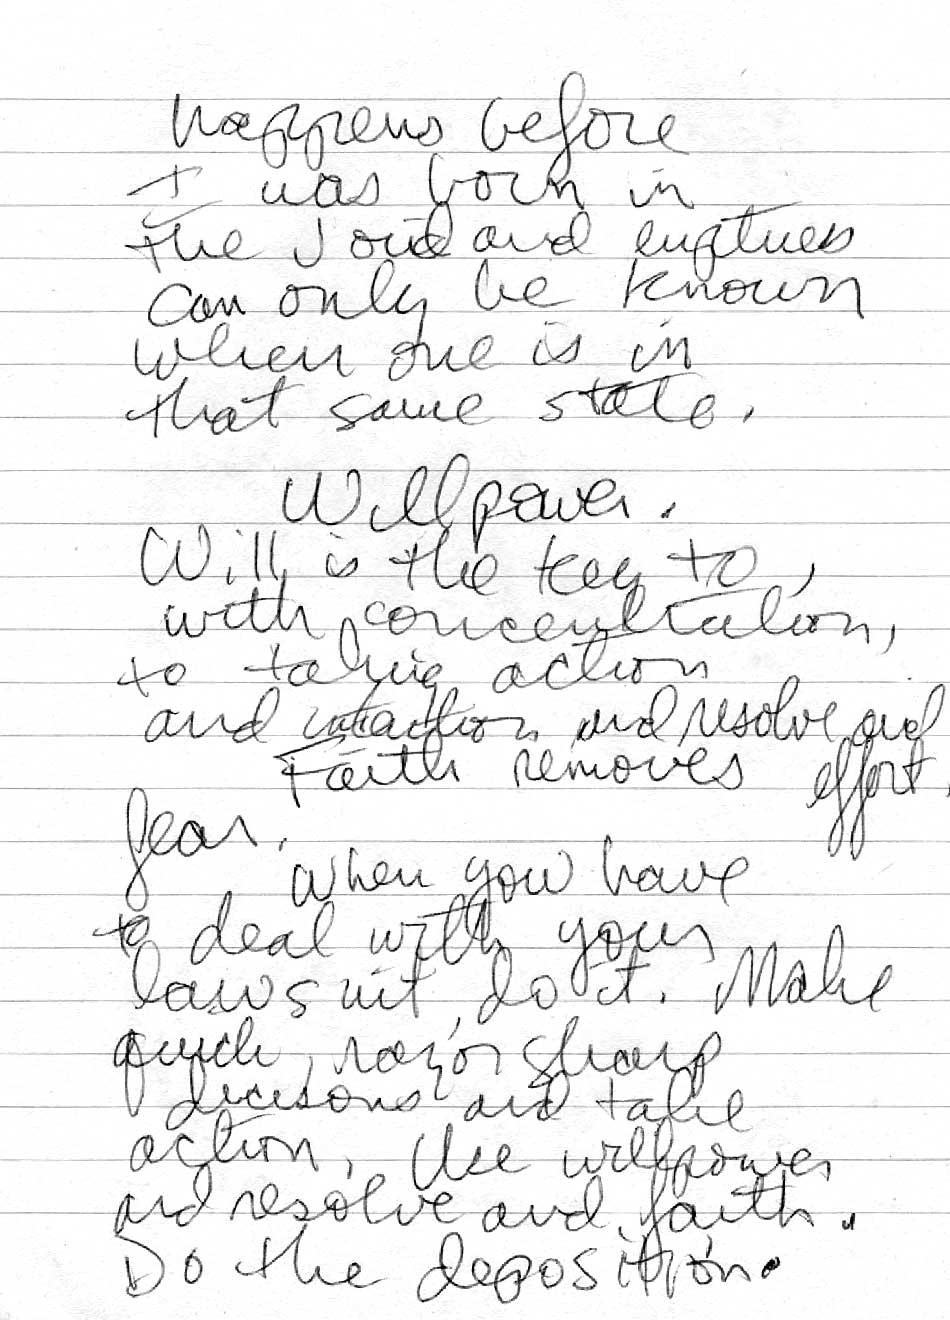 happens before
I was born in
the void and emptiness
can only be known
when one is in
that same state.
Willpower.
Will is the key to,
with concentration,
to taking action
and inaction and resolve and
effort.
Faith removes
fear.
When you have
to deal with your
lawsuit, do it. Make
quick, razor sharp
decisons and take
action. Use willpower
and resolve and faith.
Do the deposition.